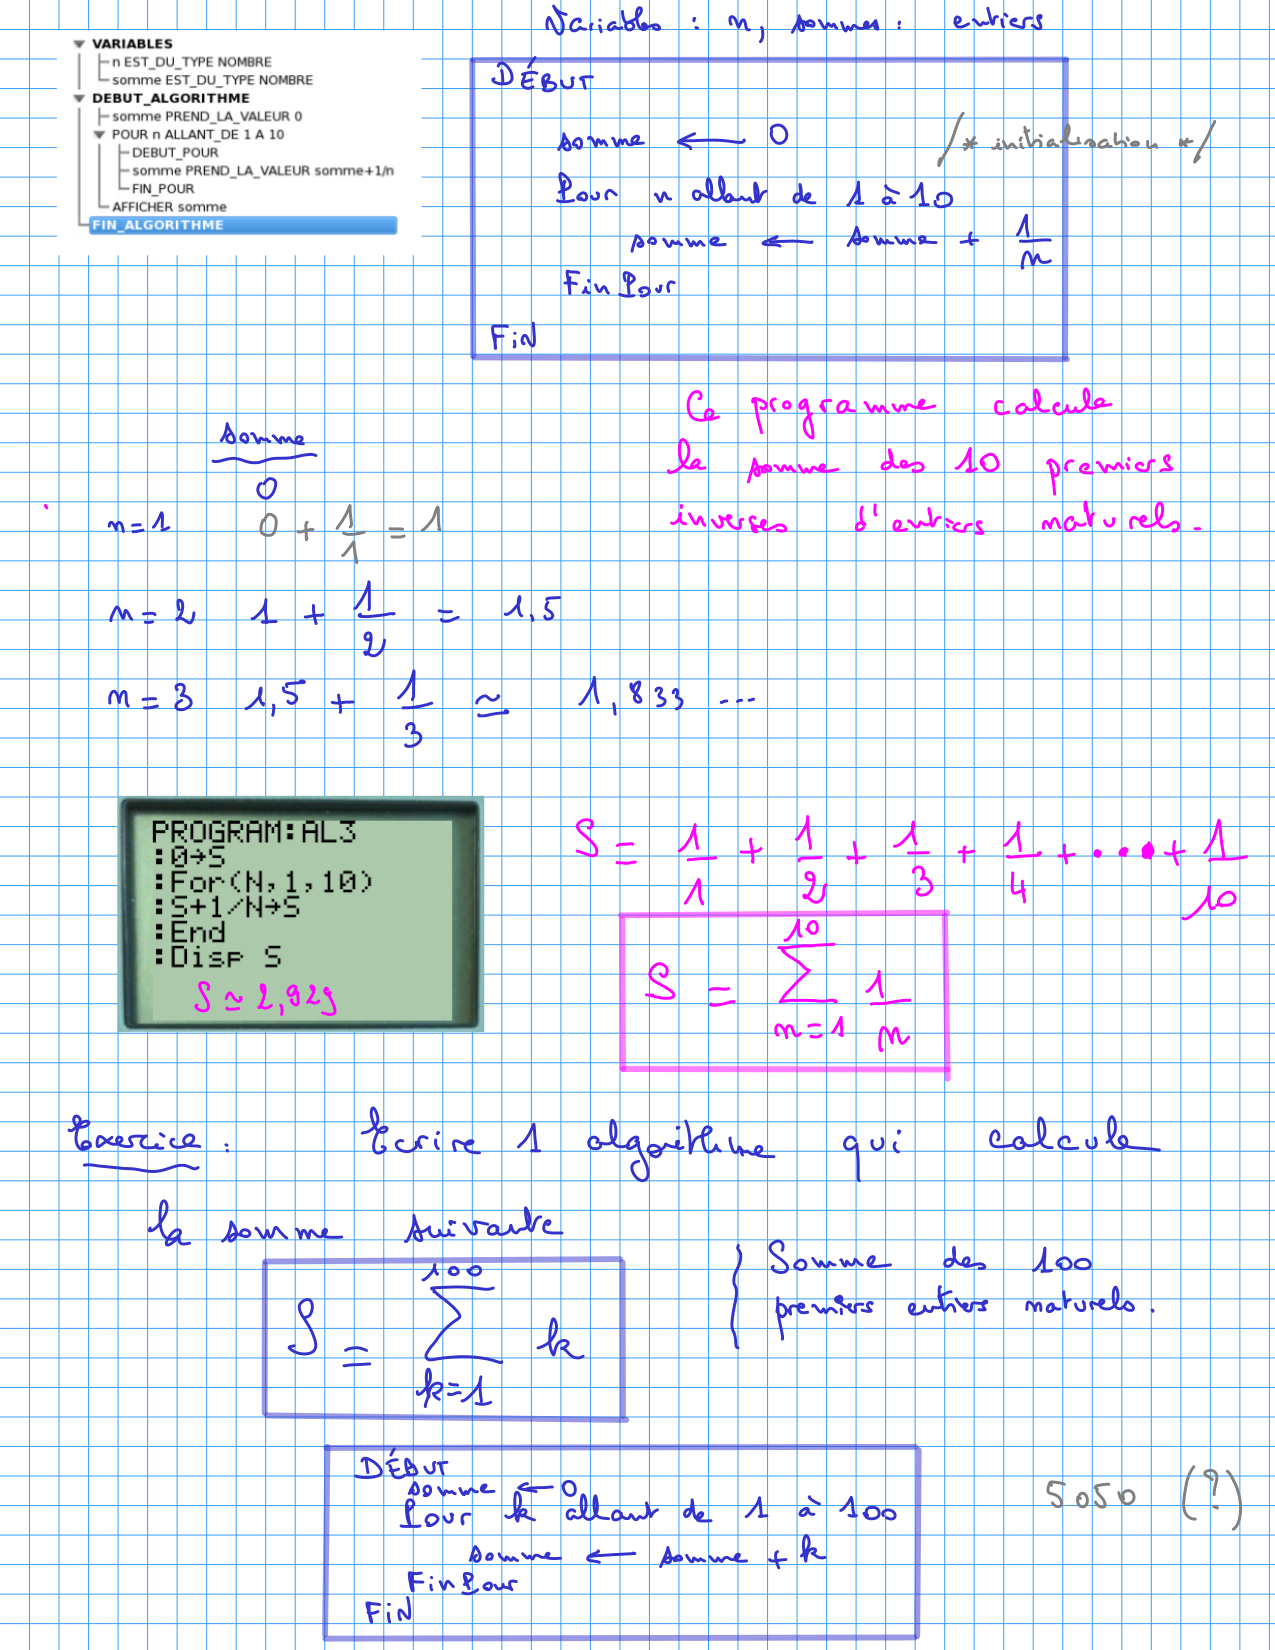 Variables : n, sommes : entiers
VARIABLES
n EST_DU_TYPE NOMBRE
somme EST_DU_TYPE NOMBRE
DEBUT_ALGORITHME
somme PREND_LA_VALEUR 0
POUR n ALLANT_DE 1 A 10
DEBUT_POUR
somme PREND_LA_VALEUR somme+1/n
FIN_POUR
AFFICHER somme
FIN_ALGORITHME
DÉBUT
somme ← 0 /* initialisation */
Pour n allant de 1 à 10
somme ← somme + 1/n
FinPour
FiN
Ce programme calcule
la somme des 10 premiers
inverses d'entiers naturels.
somme
0
n=1 0 + 1/1 = 1
n=2 1 + 1/2 = 1,5
n=3 1,5 + 1/3 ≃ 1,833 ...
PROGRAM:AL3
:0→S
:For(N,1,10)
:S+1/N→S
:End
:Disp S
S ≃ 2,929
S = 1/1 + 1/2 + 1/3 + 1/4 + .... + 1/10
S = ∑_{n=1}^{10} 1/n
Exercice : Ecrire 1 algorithme qui calcule
la somme suivante
S = ∑_{k=1}^{100} k
Somme des 100
premiers entiers naturels.
DÉBUT
somme ← 0
Pour k allant de 1 à 100
somme ← somme + k
FinPour
FiN
5050 (?)